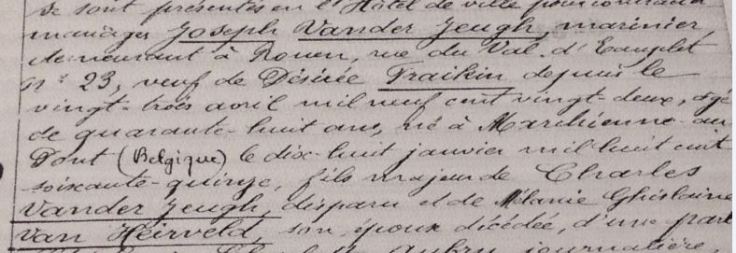 se sont présentés en l'Hôtel de ville pour contracter
mariage, Joseph Vander Jeugh, marinier,
demeurant à Rouen, rue du Val d'Eauplet
n° 23, veuf de Désirée Fraikin depuis le
vingt-trois avril mil neuf cent vingt-deux, âgé
de quarante-huit ans, né à Marchienne-au
Pont (Belgique) le dix-huit janvier mil huit cent
soixante-quinze, fils majeur de Charles
Vander Jeugh, disparu et de Mélanie Ghislaine
Van Heirveld, son épouse décédée, d'une part
Aubry journalière,